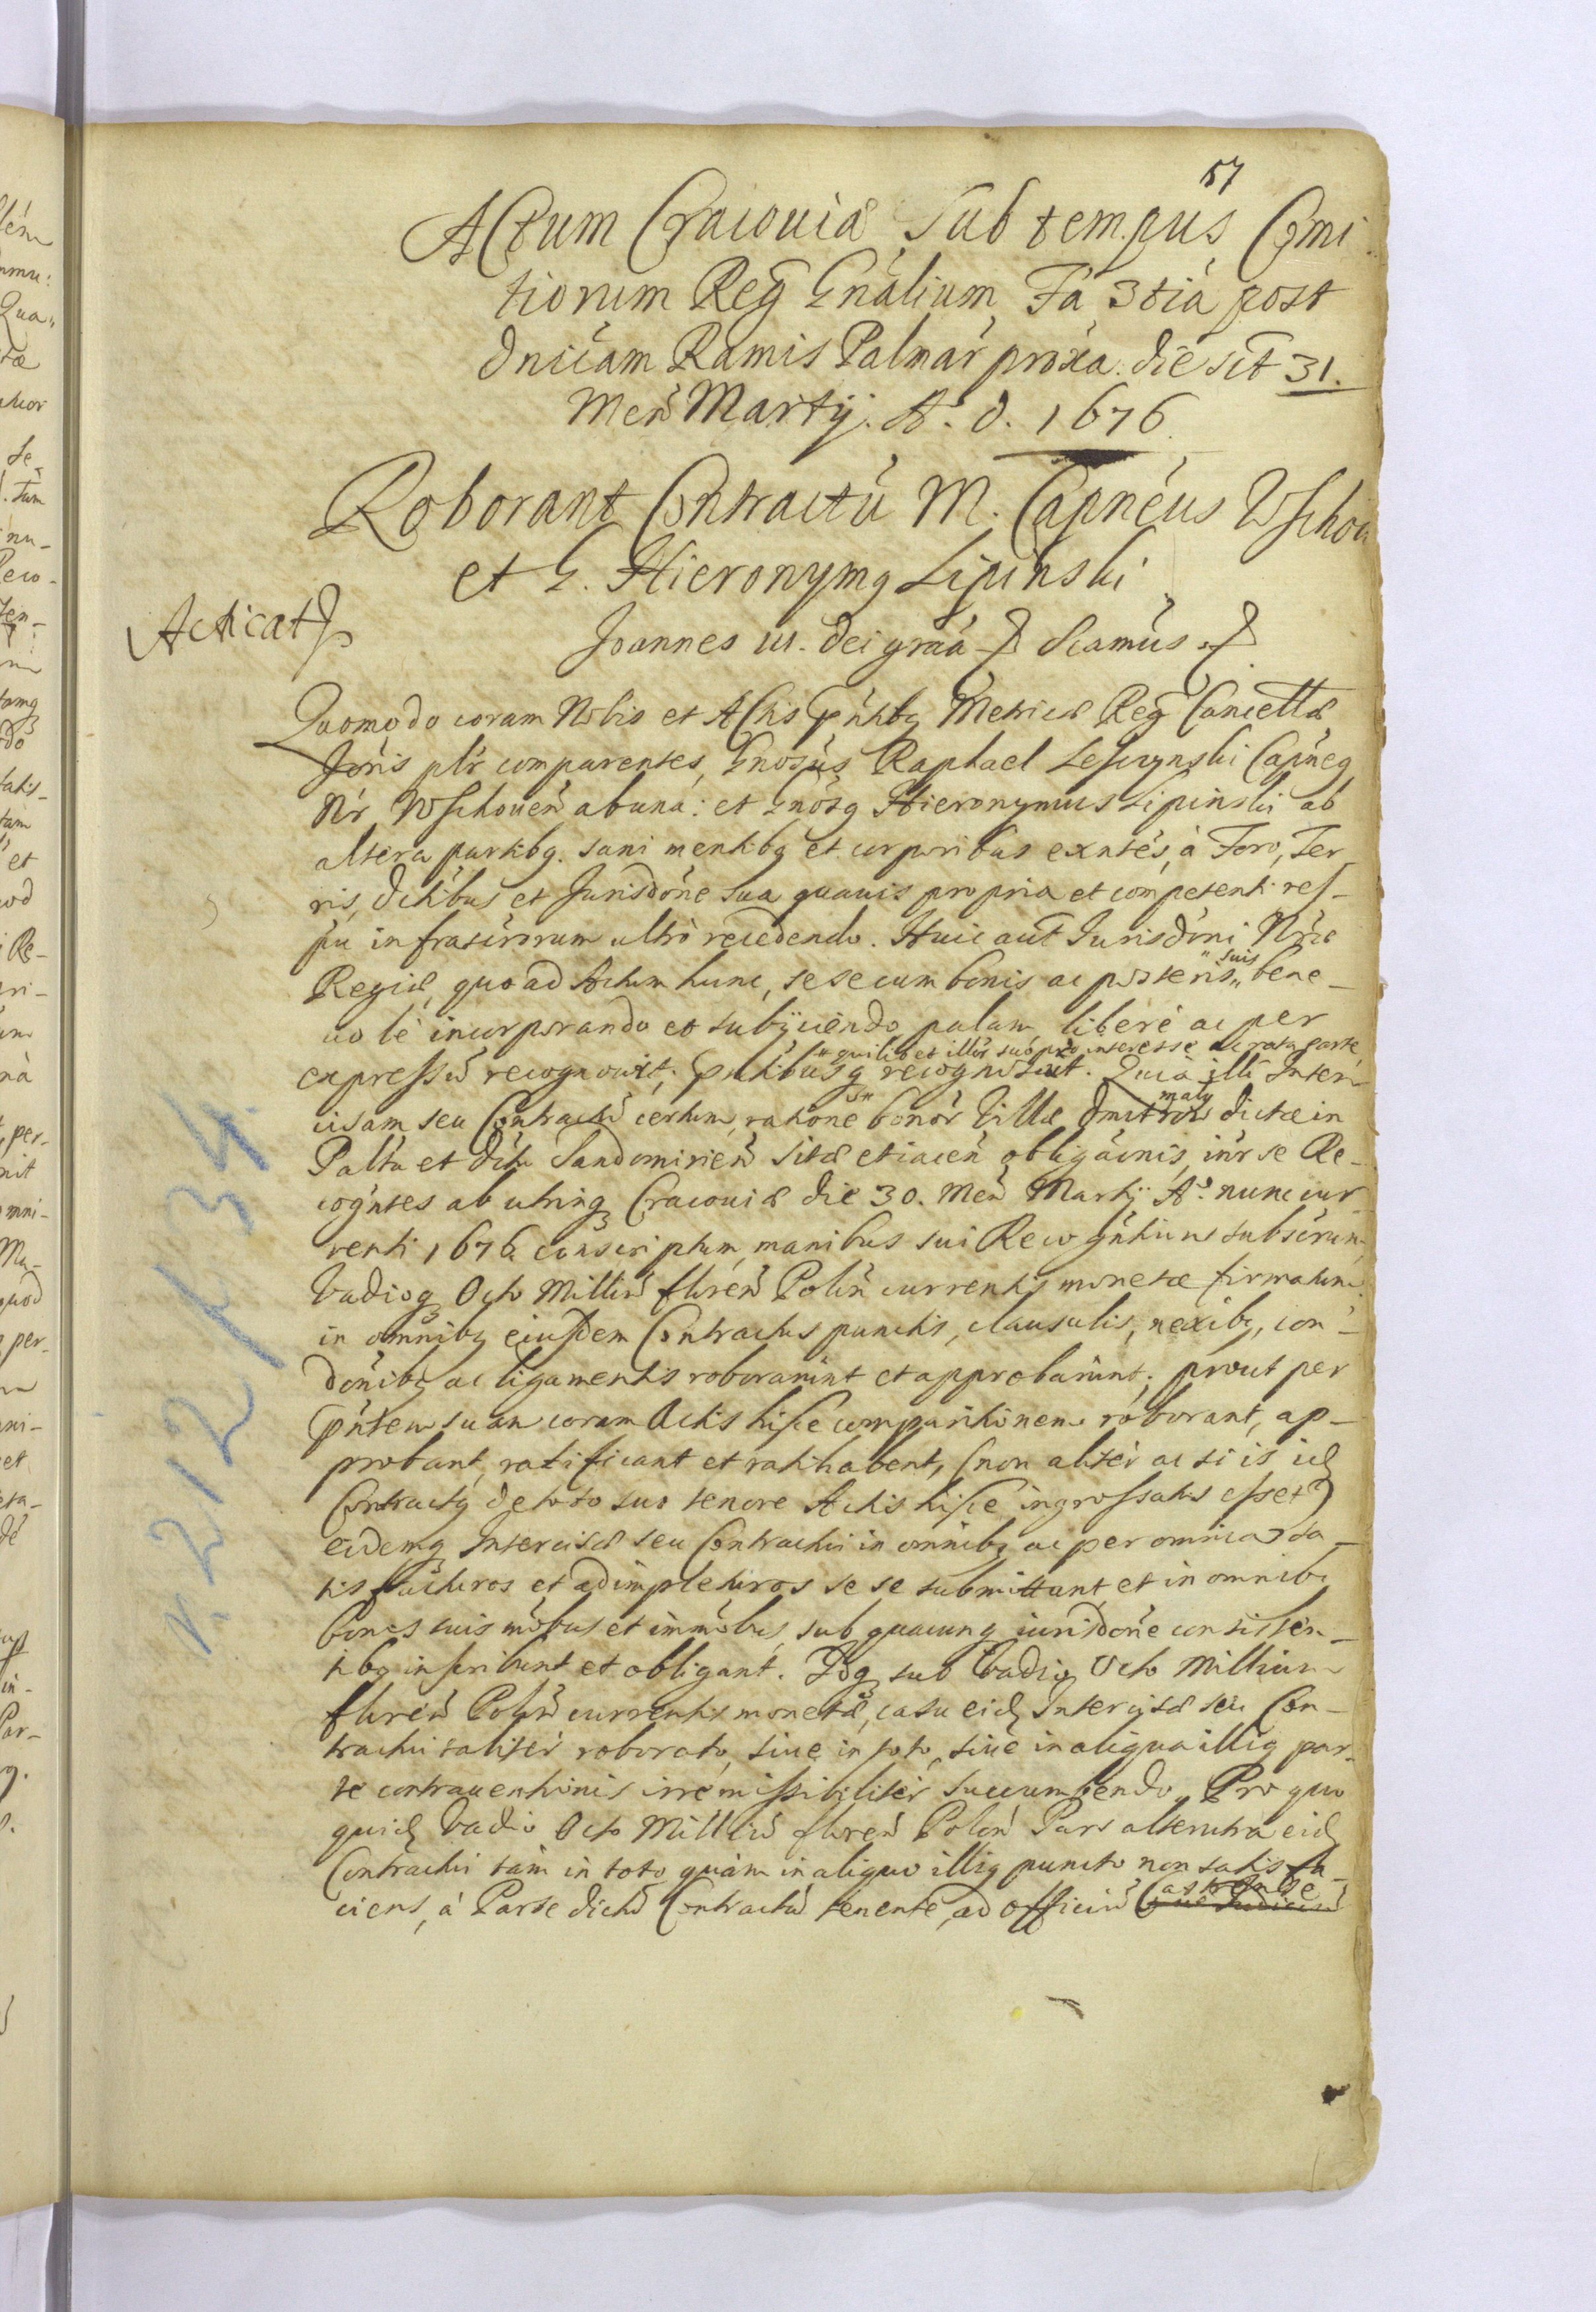 57
Actum Cracouiæ Sub tempus Comi
tiorum Reg Gnalium, Fa 3tia post
dnicam Ramis Palmar proxa. die sct 31.
Men Martij. A. D. 1676.
Roborant Contractu M. Capneus Wschou
et G. Hieronymq Lipinski
Acticat
Joannes III. Dei graa Scamus
Quomodo coram Nobis et Actis Pntibq Metricæ Reg Cancellæ
Joris plr comparentes, Gnosus Raphael Lesczynski Capneq
Nr Wschouen ab una: et Gnosq Hieronymus Lipinski ab
altera partibq. sani mentibq et corporibus exntes, à Foro, Ter
ris, Dctibus et Jurisdone sua quauis propria et competenti res-
pu infrascrorum ultrò recedendo. Huic aut Jurisdoni Nræ
Regiæ, quo ad Actum hunc, sese cum bonis ac posteris suis bene-
uole incorporando et subijciendo, palam liberè ac per
expressu recognouit, Pntibusq recognoscit. Quia illi Inter
quilibet illor suo pro interesse ac rata parte
cisam seu Contractu certum, ratione bonor Villæ Dmitrow maly dictæ in
Paltu et Dctu Sandomirien sitæ et iacen obligacnis, inr se Re-
cogntes ab utrinq Cracouiæ die 30. Men Martij A. nunc cur
renti 1676 conscriptum, manibus sui Recogntium subscrum
Vadioq Octo Milliu floren Poln currentis monetæ firmatum
in omnibq eiusdem Contractus punctis, clausulis, nexibq, con-
donibq ac ligamentis roborarunt et approbarunt, prout per
Pntem suam coram Actis hisce comparitionem roborant, ap-
probant, ratificant et ratihabent, (non aliter ac si is id
Contractq de toto suo tenore Actis hisce ingrossatus esset)
eidemq Intercisæ seu Contractui in omnibq ac per omnia sa-
tisfacturos et adimpleturos sese submittunt, et in omnibq
bonis suis mobus et immobus, sub quacunq iurisdone consisten-
tibq inscribunt et obligant. Idq sub Vadio Octo Millium
floren Poln currentis monetæ, casu eid Intercisæ seu Con-
tractui taliter roborato, siue in toto, siue in aliqua illiq par-
te contrauentionis irremissibiliter succumbendo. Pro quo
quid Vadio Octo Milliu floren Polon Pars alterutra eid
Contractui tàm in toto quàm in aliquo illiq puncto non satisfa-
ciens, à Parte dictu Contractu tenente, ad officiu Castrense
N. 212 k 34.